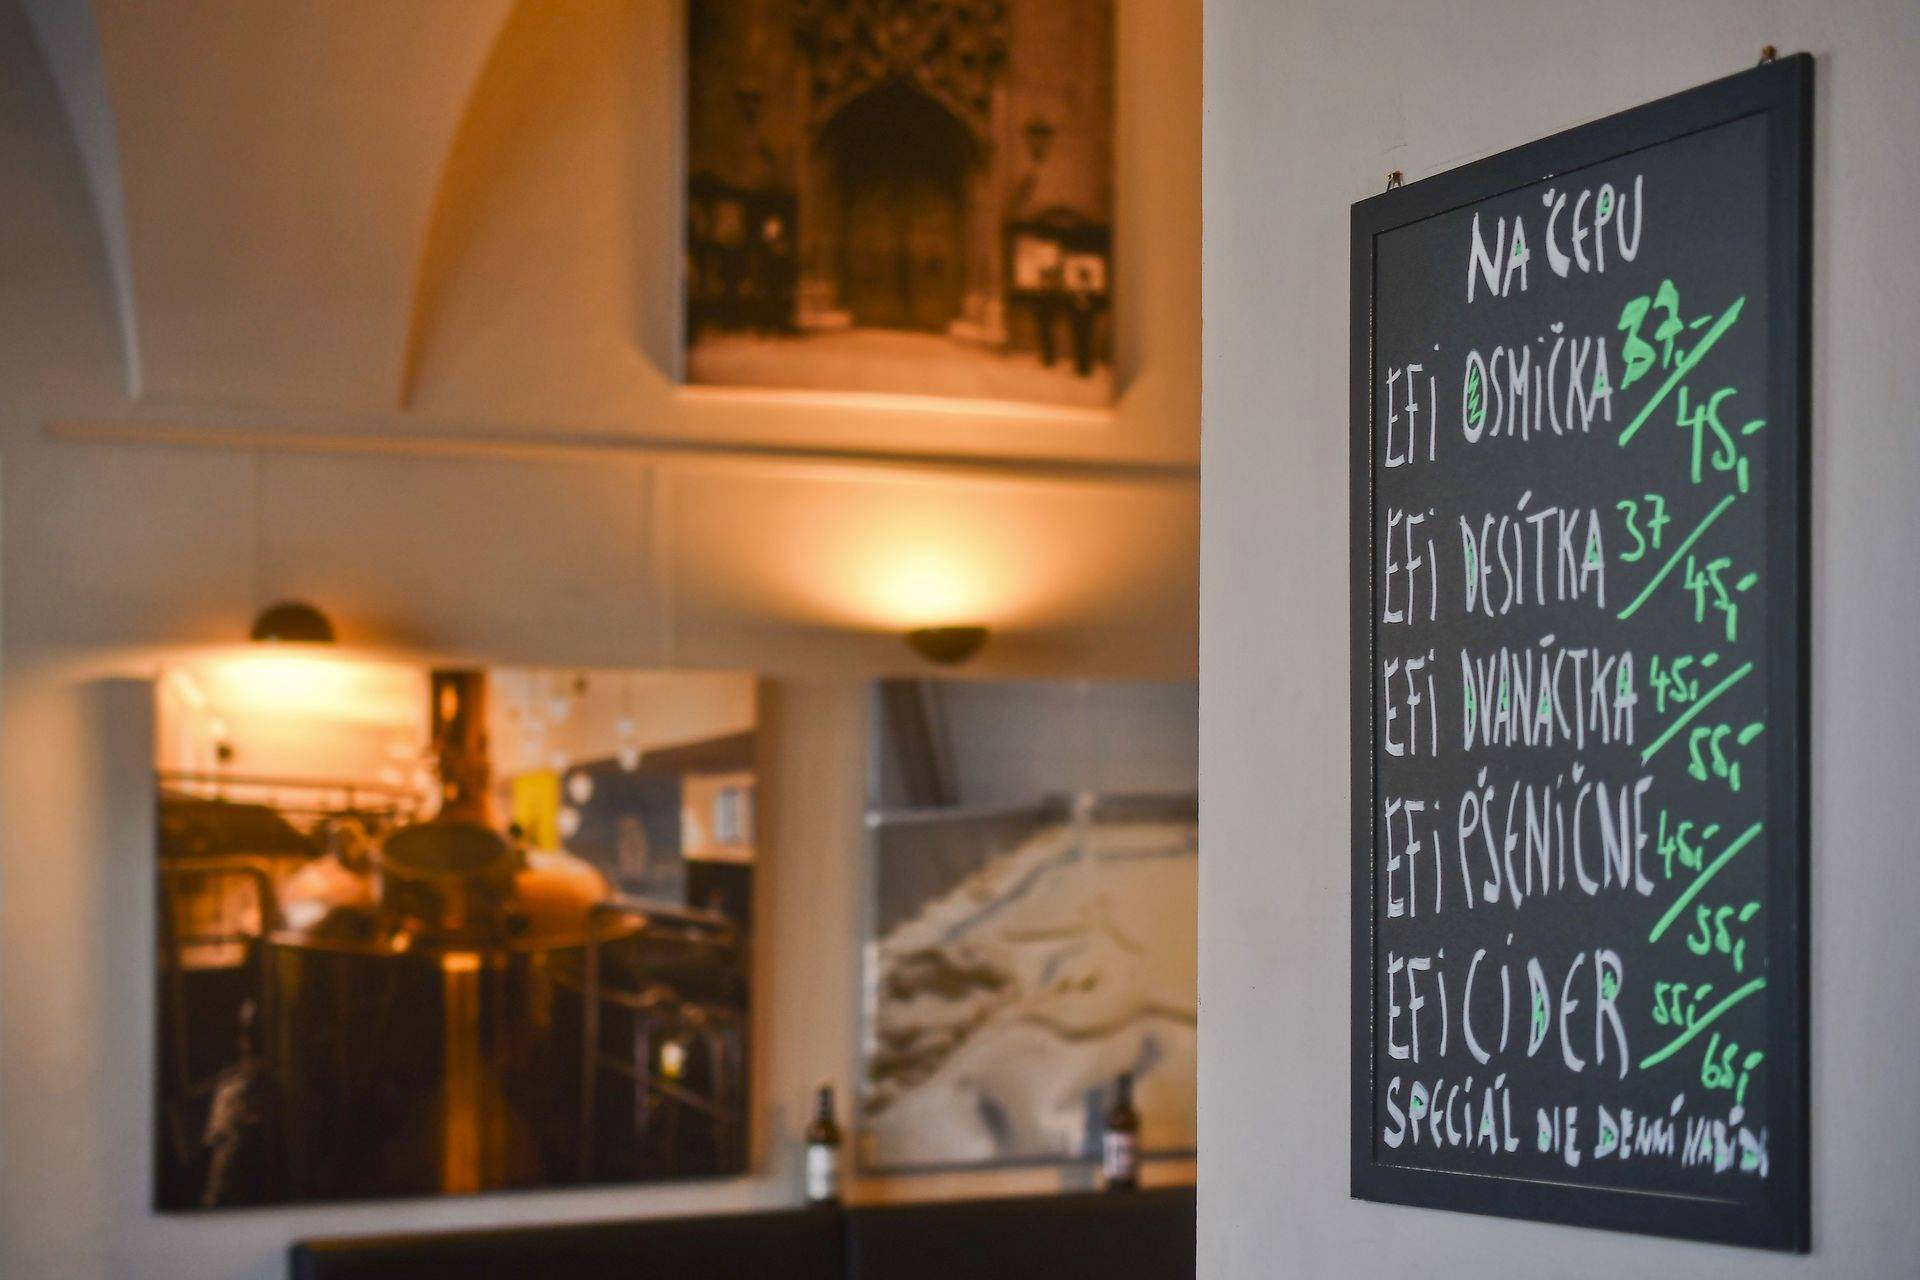 NA ČEPU
EFi OSMiČKA 37,-/45,-
EFi DESÍTKA 37/45,-
EFi DVANÁCTKA 45,-/55,-
EFi PŠENiČNÉ 45,-/55,-
EFi CÍDER 55,-/65,-
SPECiÁL DLE DENNÍ NABÍDKY